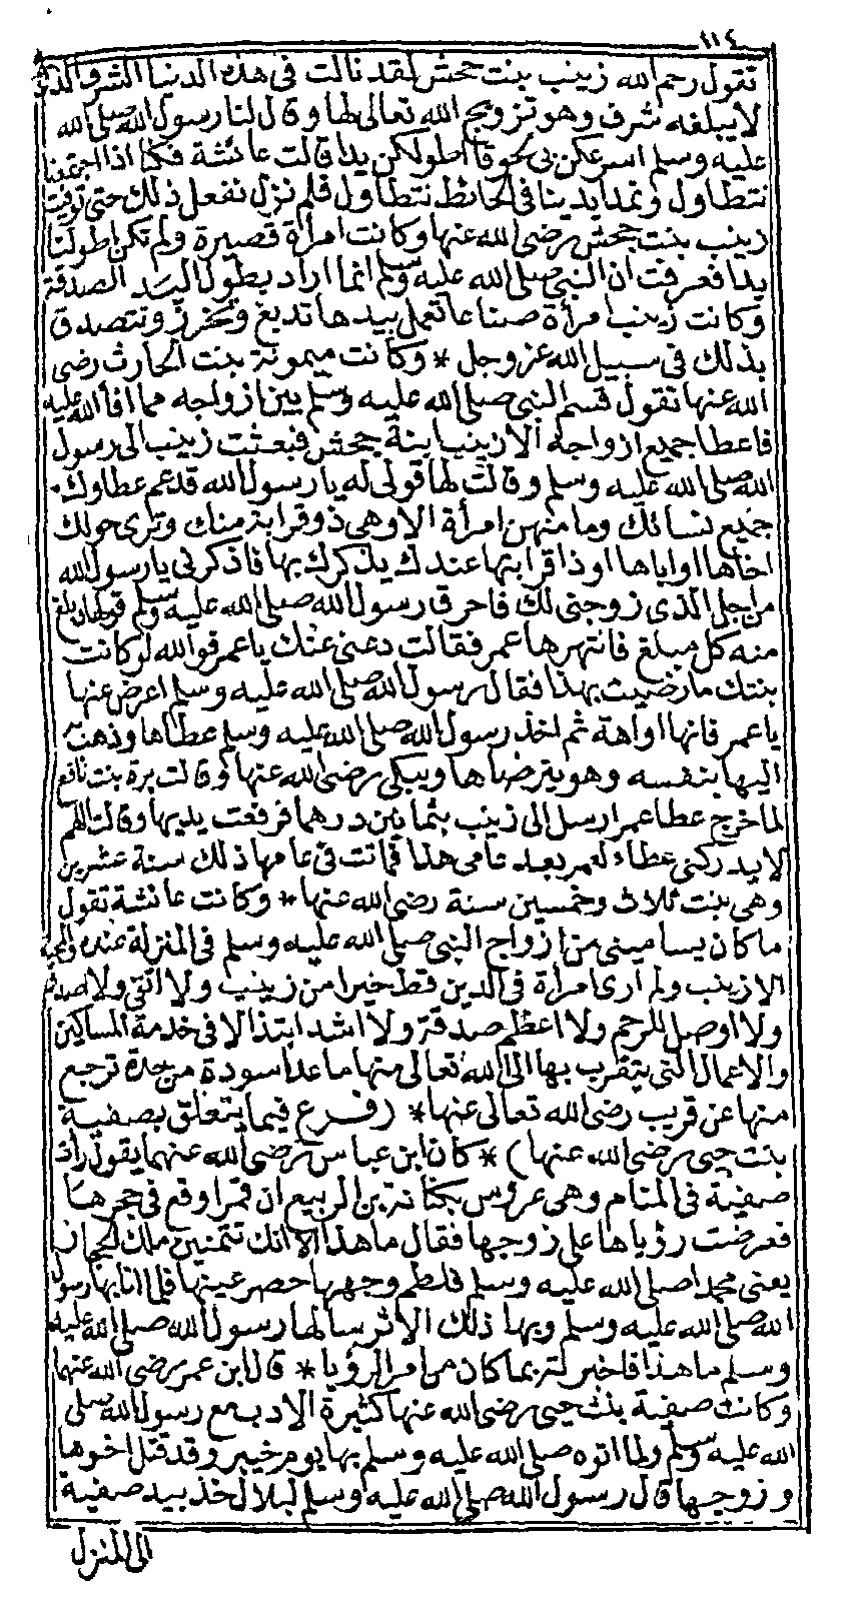 ١١٤
تقول رحم الله زينب بنت جحش لقد نالت في هذه الدنيا الشرف الذي
لا يبلغه شرف وهو تزويج الله تعالى لها وقال لنا رسول الله صلى الله
عليه وسلم اسرعكن بي لحوقا اطولكن يدا قالت عائشة فكنا اذا اجتمعنا
نتطاول ونمد ايدينا في الحائط نتطاول فلم نزل نفعل ذلك حتى توفيت
زينب بنت جحش رضى الله عنها وكانت امرأة قصيرة ولم تكن اطولنا
يدا فعرفت ان النبي صلى الله عليه وسلم انما اراد بطول اليد الصدقة
وكانت زينب امرأة صناعا تعمل بيدها تدبغ وتخرز وتتصدق
بذلك في سبيل الله عز وجل * وكانت ميمونة بنت الحارث رضى
الله عنها تقول قسم النبي صلى الله عليه وسلم بين ازواجه مما افأ الله عليه
فاعطا جميع ازواجه الا زينب ابنة جحش فبعثت زينب الى رسول
الله صلى الله عليه وسلم وقالت لها قولى له يا رسول الله قد عم عطاوك
جميع نسائك وما منهن امرأة الا وهي ذو قرابة منك وترى حولك
اخاها او اباها او ذا قرابتها عندك يذكرك بها فاذكرني يا رسول الله
من اجل الذى زوجني لك فاحرق رسول الله صلى الله عليه وسلم قولها وبلغ
منه كل مبلغ فانتهرها عمر فقالت دعني عنك يا عمر فوالله لو كانت
بنتك ما رضيت بهذا فقال رسول الله صلى الله عليه وسلم اعرض عنها
يا عمر فانها اواهة ثم اخذ رسول الله صلى الله عليه وسلم عطاها وذهب
اليها بنفسه وهو يترضاها ويبكى رضى الله عنها وقالت برة بنت نافع
لما خرج عطا عمر ارسل الى زينب بثمانين درهما فرفعت يديها وقالت اللهم
لا يدركنى عطاء لعمر بعد عامى هذا فماتت في عامها ذلك سنة عشرين
وهى بنت ثلاث وخمسين سنة رضى الله عنها * وكانت عائشة تقول
ما كان يساميني من ازواج النبي صلى الله عليه وسلم في المنزلة عنده والمحبة
الا زينب ولم ارى امرأة في الدين قط خيرا من زينب ولا اتقى ولا اصدق
ولا اوصل للرحم ولا اعظم صدقة ولا اشد ابتذالا في خدمة المساكين
والاعمال التي يتقرب بها الى الله تعالى منها ما عدا سودة من حدة ترجع
منها عن قريب رضى الله تعالى عنها * (فرع فيما يتعلق بصفية
بنت حيى رضى الله عنها) * كان ابن عباس رضى الله عنهما يقول رأت
صفية في المنام وهي عروس بكنانة بن الربيع ان قمرا وقع في حجرها
فعرضت رؤياها على زوجها فقال ما هذا الا انك تتمنين ملك الحجاز
يعني محمدا صلى الله عليه وسلم فلطم وجهها حصر عينها فلما اتا بها رسول
الله صلى الله عليه وسلم وبها ذلك الاثر سالها رسول الله صلى الله عليه
وسلم ما هذا فاخبرته بما كان من امر الرؤيا * قال ابن عمر رضى الله عنهما
وكانت صفية بنت حيى رضى الله عنها كثيرة الادب مع رسول الله صلى
الله عليه وسلم ولما اتوه صلى الله عليه وسلم بها يوم خيبر وقد قتل اخوها
وزوجها قال رسول الله صلى الله عليه وسلم لبلال خذ بيد صفية
الى المنزل